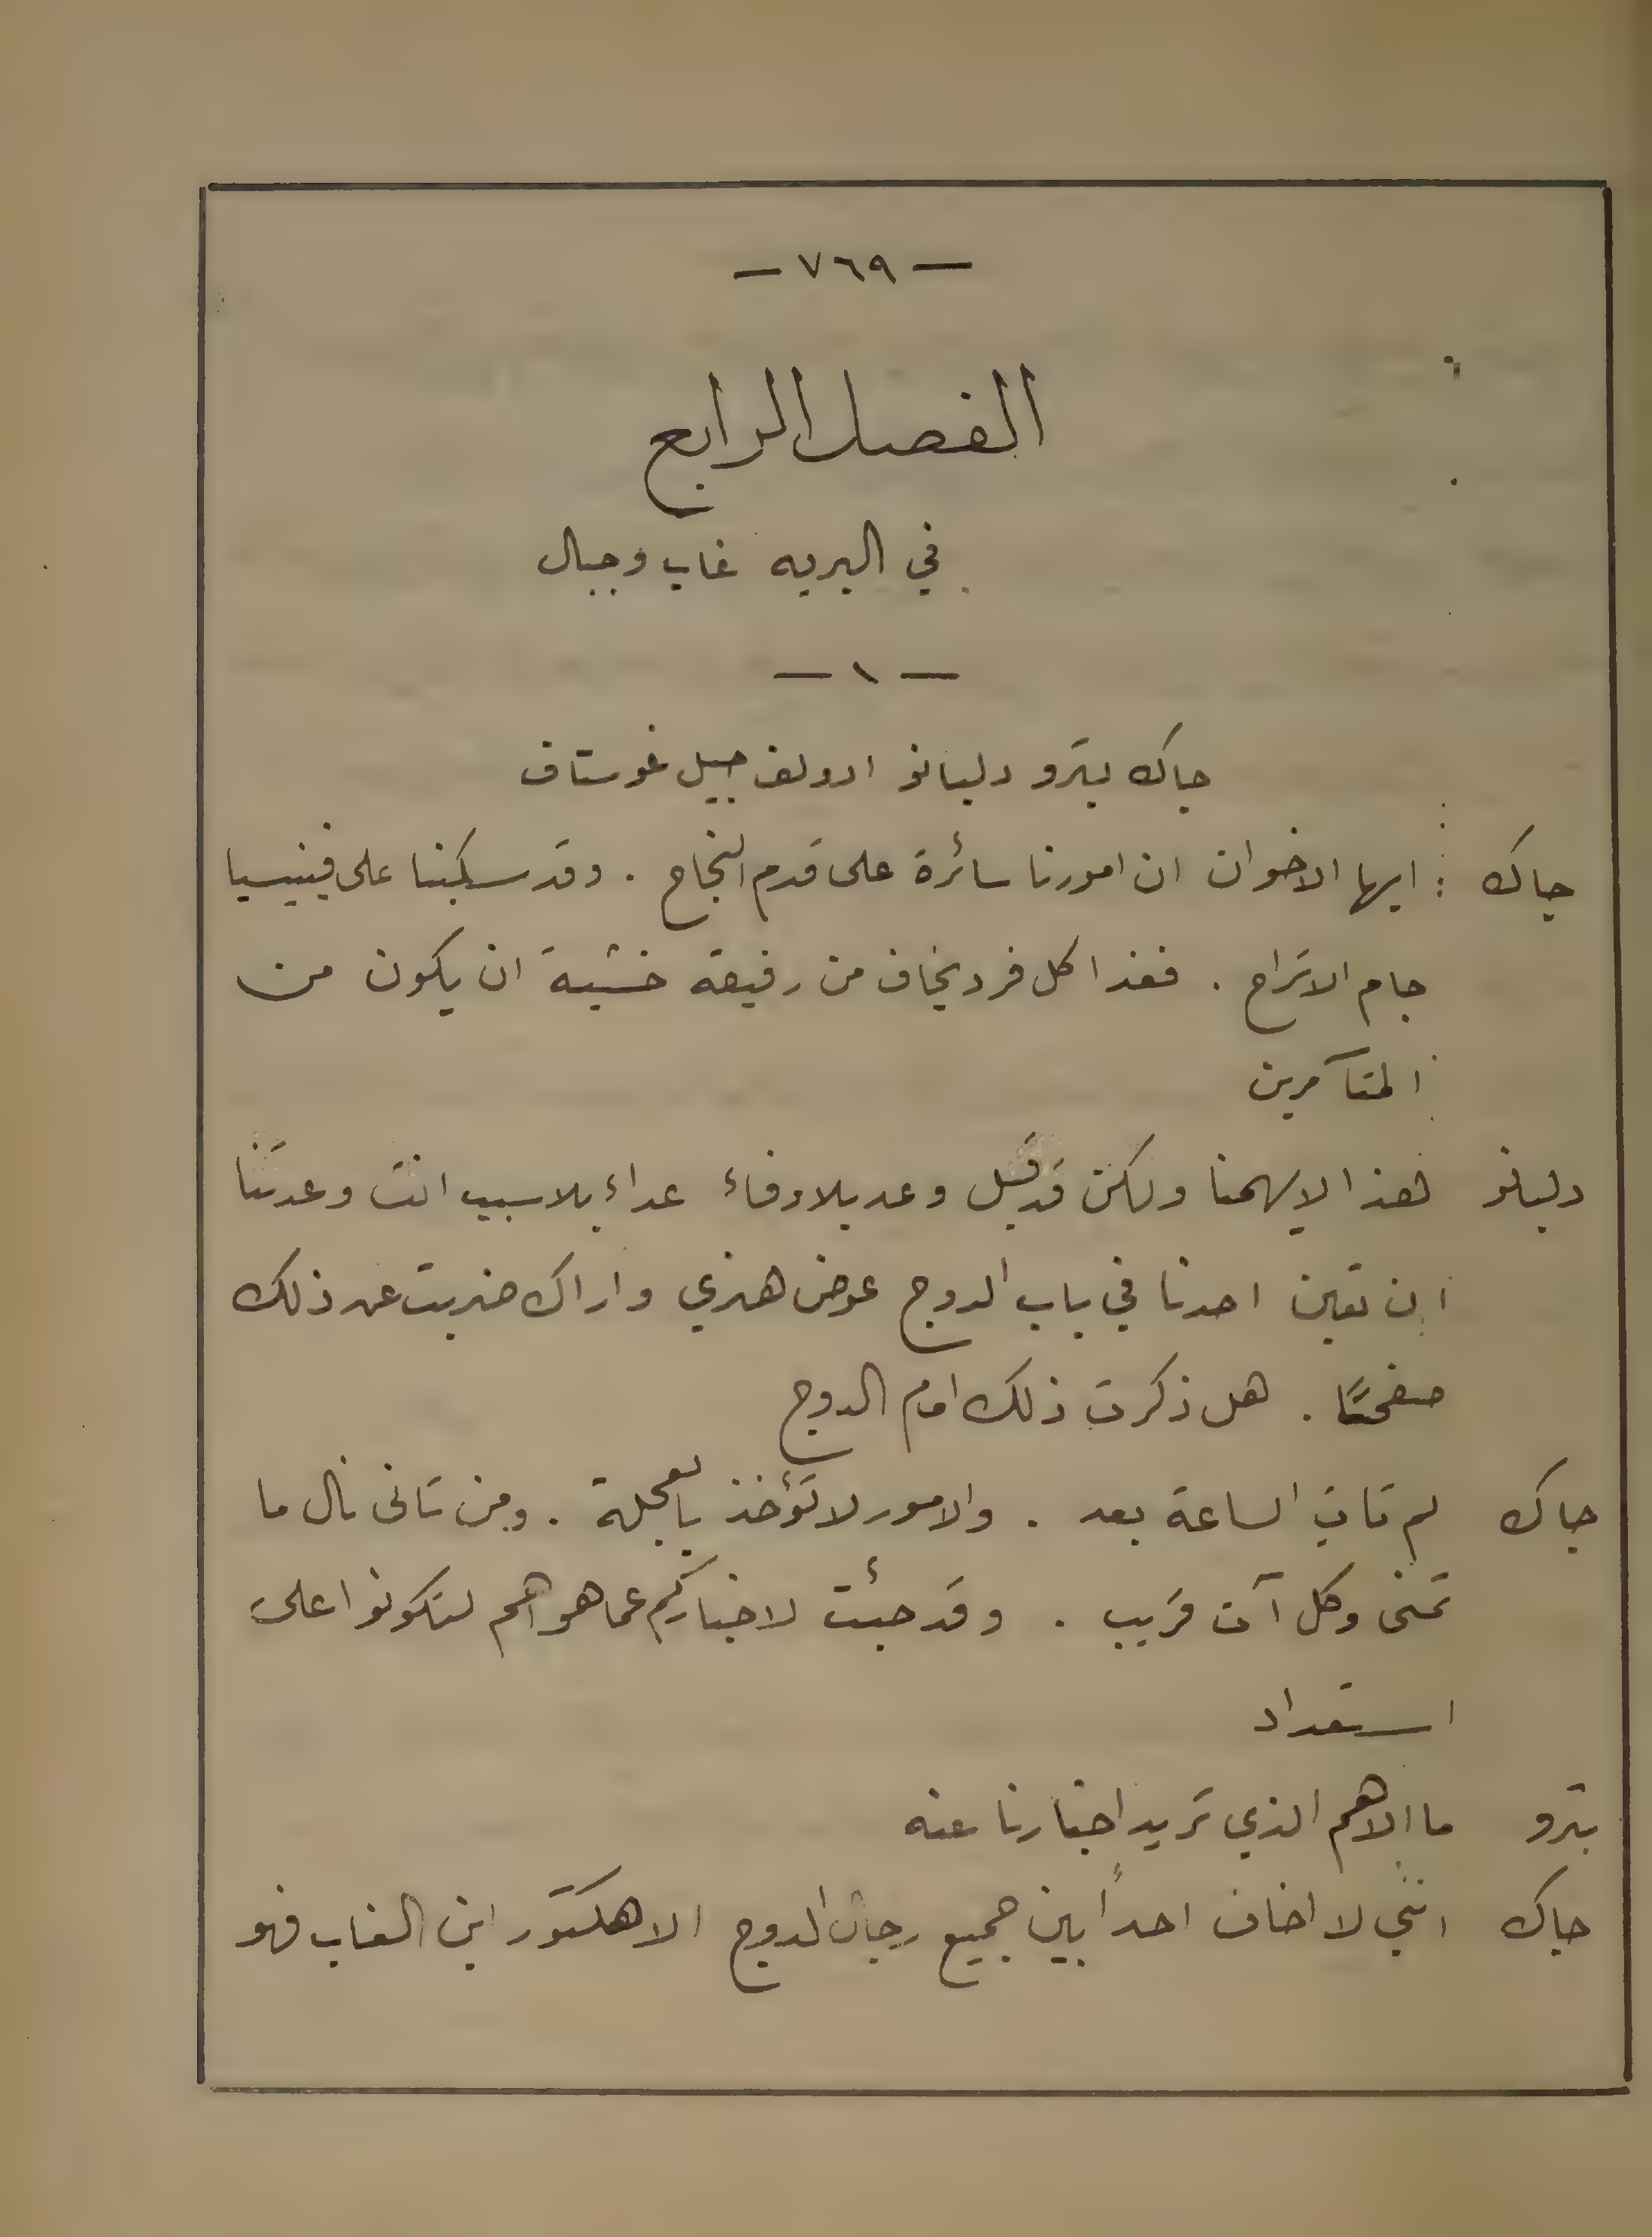 — ٧٦٩ —
الفصل الرابع
في البريه غاب وجبال
— ١ —
جاك بترو دلبانو ادولف جيل غوستاف
جاك : ايها الاخوان ان امورنا سائرة على قدم النجاح . وقد سكبنا على فينيسيا
جام الاتراح . فغدا كل فرد يخاف من رفيقه خشية ان يكون من
المتآمرين
دلبانو فهذا لا يهمنا ولكن قد قيل وعد بلا وفاء عداء بلا سبب انت وعدتنا
ان تعين احدنا في باب الدوج عوض هنري واراك ضربت عن ذلك
صفحًا . هل ذكرت ذلك امام الدوج
جاك لم تات الساعة بعد . والامور لا تؤخذ بالعجلة . ومن تانى نال ما
تمنى وكل آت قريب . وقد جئت لاخباركم عما هو اهم لتكونوا على
استعداد
بترو ما الاهم الذي تريد اخبارنا عنه
جاك انني لا اخاف احداً بين جميع رجال الدوج الا هكتور ابن الغاب فهو